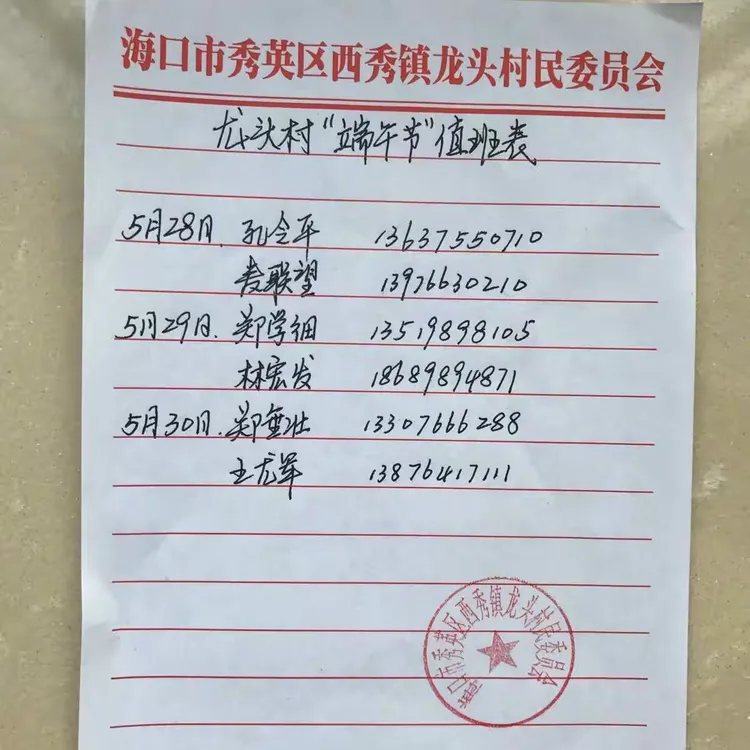 海口市秀英区西秀镇龙头村民委员会
龙头村“端午节”值班表
5月28日.孔令平 13637550710
麦联望 13976630210
5月29日.郑学细 13519898105
林宏发 18689894871
5月30日.郑壮 13307666288
王龙军 13876417111
海口市秀英区西秀镇龙头村民委员会